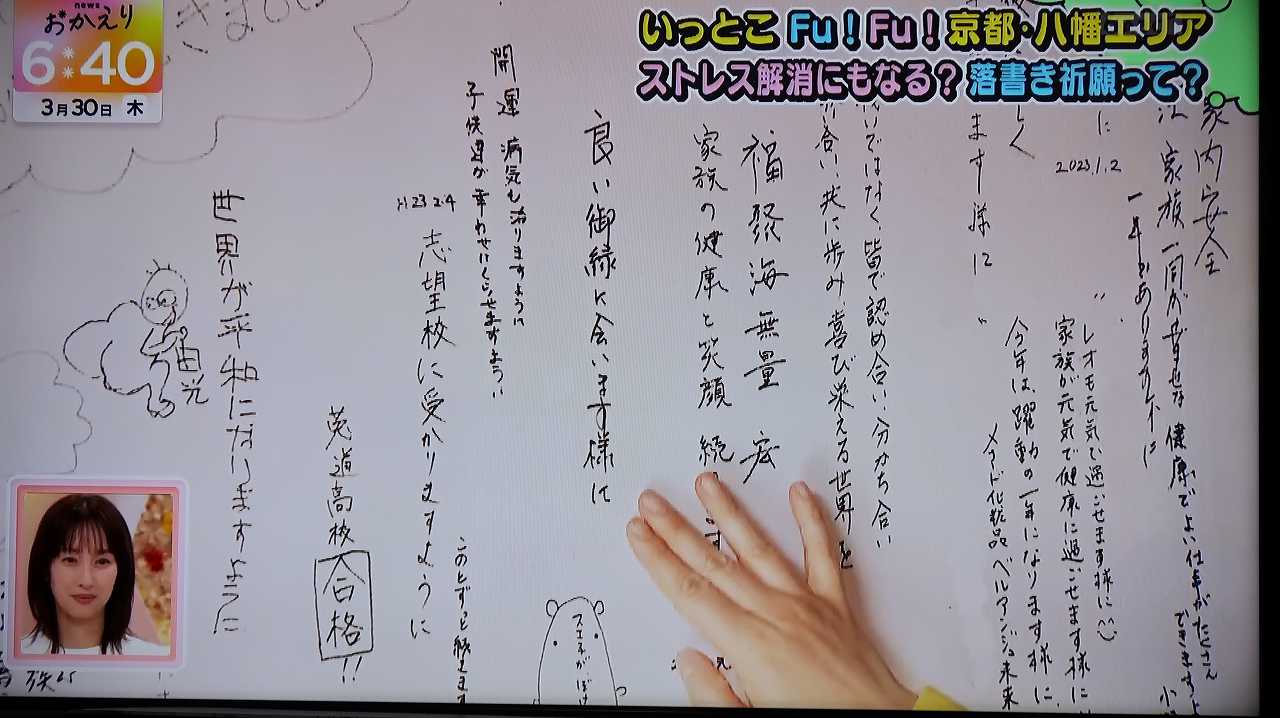 news
おかえり
6:40
3月30日 木
いっとこ Fu!Fu!京都・八幡エリア
ストレス解消にもなる?落書き祈願って?
家内安全
家族一同が幸せな健康でよい仕事がたさん
できます
2023.1.2
ます様に
レオも元気で過ごせます様に
家族が元気で健康に過ごせます様に
今年は、躍動の一年になります様に
メナード化粧品 ベルアンジュ未来
ではなく、皆で認め合い、分かち合い
合い、共に歩み、喜び栄える世界を
福聚海無量
家族の健康と笑顔
良い御縁に会います様に
開運 病気も治りますように
子供達が幸わせにくらせますように
H23 2.4
志望校に受かりますように
英道高校
合格!!
世界が平和になりますように
由光